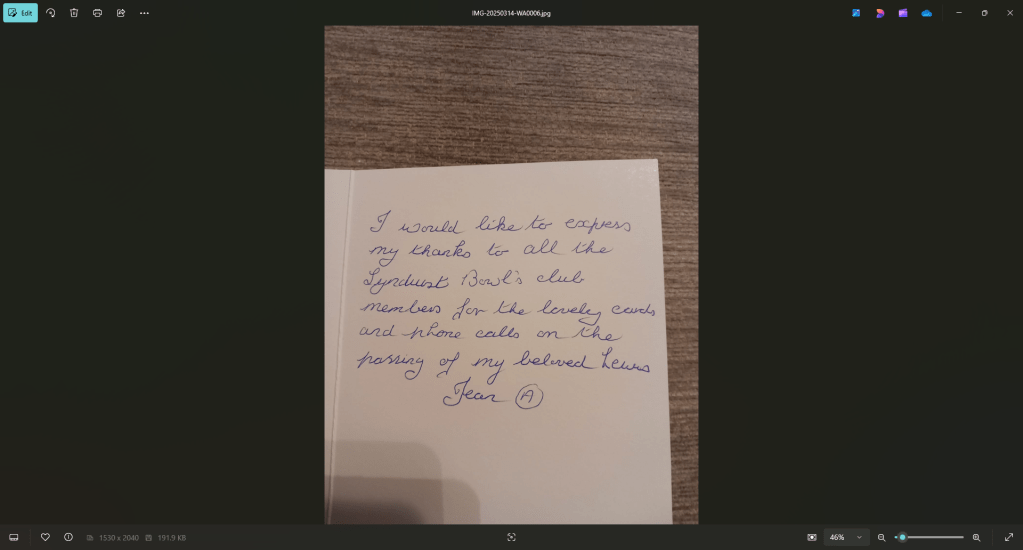 IMG-20250314-WA0006.jpg
Edit
I would like to express
my thanks to all the
Lyndhurst Bowl's club
members for the lovely cards
and phone calls on the
passing of my beloved Lewis
Jean A
1530 x 2040 191.9 KB
46%